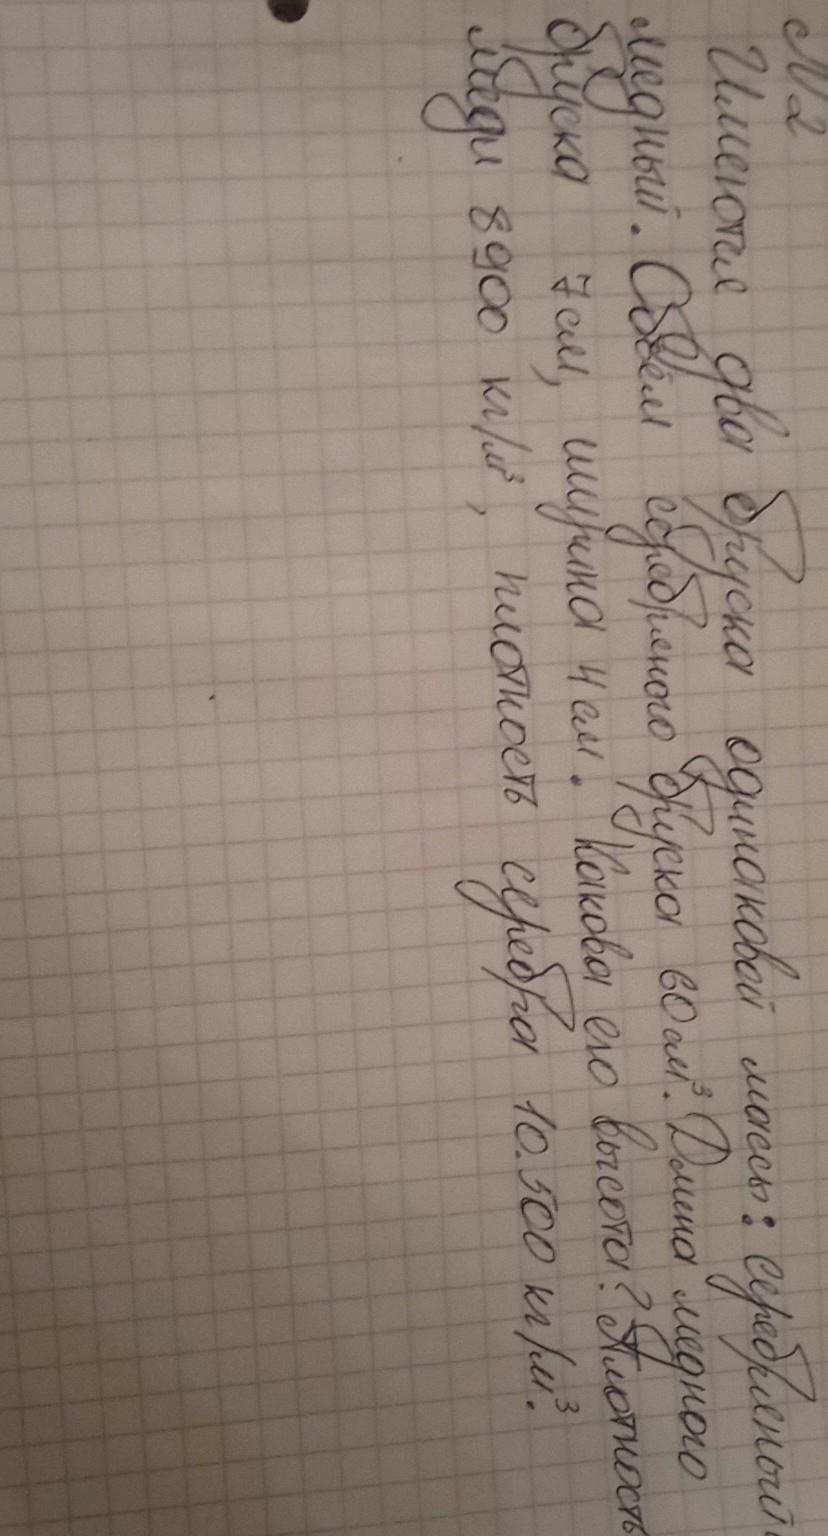 №2
Имеются два бруска одинаковой массы: серебряный
медный. Объём серебряного бруска 80 см³. Длина медного
бруска 7 см, ширина 4 см. Какова его высота? Плотность
меди 8900 кг/м³, плотность серебра 10.500 кг/м³.